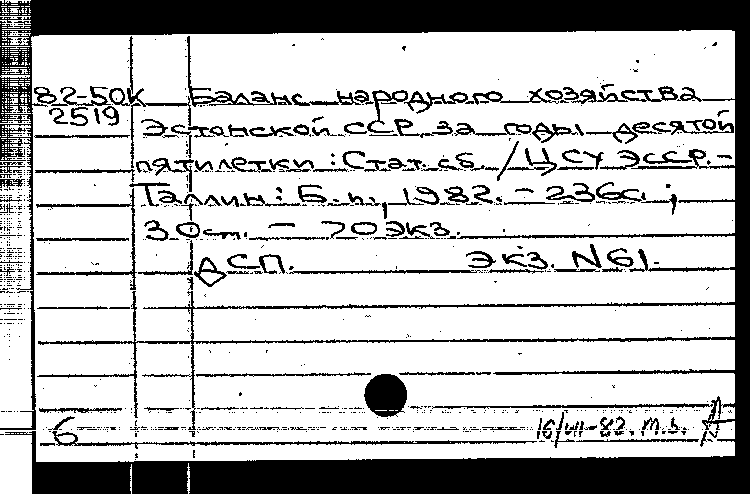 82-50К Баланс народного хозяйства
2519 Эстонской ССР за годы десятой
пятилетки : Стат. сб. / ЦСУ ЭССР. -
Таллин : Б. и., 1982. - 236с. ;
30см. - 70экз.
ДСП. Экз. N61.
6 16/VII-82. т.з.